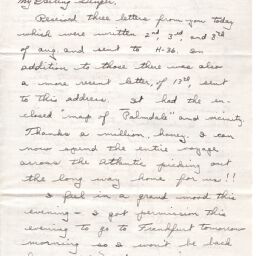 My Darling
Received three letters from you today
which were written 2nd, 3rd and 3rd
of aug. and sent to H-36. In
addition to those there was also
a more recent letter, of 13th, sent
to this address. It had the en-
closed "map of Palmdale" and vicinity.
Thanks a million, honey. I can
now spend the entire voyage
across the Atlantic picking out
the long way home for us!!
I feel in a grand mood this
evening – I got permission this
evening to go to Frankfurt tomorrow
morning so I won't be back